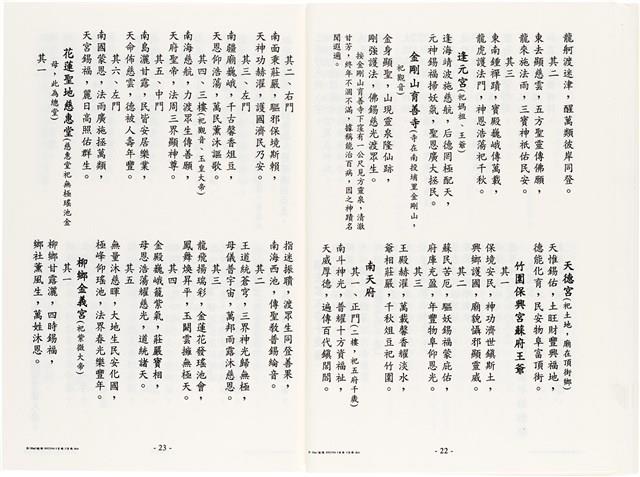 龍舸渡迷津，醒萬類彼岸同登。
其二
東去顯慈雲，五方聖靈傳佛願，
龍來施法雨，三寶神祇佑民安。
其三
東南鍾禪蹟，寶殿巍峨傳萬載，
龍虎護法門，神恩浩蕩祀千秋。
逢元宮(祀媽祖、王爺)
逢海靖波施慈航，后德罔極配天，
元神錫福掃妖氣，聖恩廣大拯民。
金剛山育善寺(寺在南投埔里金剛山，
祀觀音)
金身顯聖，山現靈泉隆仙跡，
剛強護法，佛錫慈光渡眾生。
按金剛山育善寺下窪有一公尺見方靈泉，清澈
甘芳，終年不涸不滿，據稱能治百病，因之神蹟名
聞遐邇。
天德宮(祀土地，廟在頂街鄉)
天惟錫佑，土旺財豐興福地，
德能化育，民安物阜富頂街。
竹圍保興宮蘇府王爺
其一
保境安民，神功濟世鎮斯土，
興鄉護國，廟貌懾邪顯靈威。
其二
蘇民苦厄，驅妖錫福蒙庇佑，
府庫充盈，年豐物阜仰恩光。
其三
王殿赫濯，萬載馨香耀淡水，
爺相莊嚴，千秋俎豆祀竹圍。
南天府
其一、正門(二樓，祀五府千歲)
南斗神光，普耀十方資福祉，
天威厚德，遍傳百代鎮閭閻。
- 22 -
其二、右門
南面秉莊嚴，驅邪保境斯賴，
天神功赫濯，護國濟民乃安。
其三、左門
南疆廟巍峨，千古馨香俎豆，
天恩仰浩蕩，萬民薰沐謳歌。
其四、三樓(祀觀音、玉皇大帝)
南海慈航，力渡眾生傳善願，
天府聖帝，法周三界顯神尊。
其五、中門
南島灑甘露，民皆安居樂業，
天命佈慈雲，德被人壽年豐。
其六、左門
南國蒙恩，法雨廣施拯萬類，
天宮錫福，麗日高照佑群生。
花蓮聖地慈惠堂(慈惠堂祀無極瑤池金
母，此為總堂)
其一
指迷振聵，渡眾生同登善果，
南海西池，傳聖教普錫綸音。
其二
王道統蒼穹，三界神光歸無極，
母儀普宇宙，萬邦雨露沐慈恩。
其三
龍飛揚瑞彩，金蓮花發瑤池會，
鳳舞煥昇平，玉闕雲擁無極天。
其四
金殿巍峨籠紫氣，莊嚴寶相，
母恩浩蕩耀慈光，道統諸天。
其五
無量沐慈暉，大地生民安化國，
極峰仰瑤池，法界春光樂豐年。
柳鄉金義宮(祀紫微大帝)
其一
柳鄉甘露灑，四時錫福，
鄉社薰風生，萬姓沐恩。
- 23 -